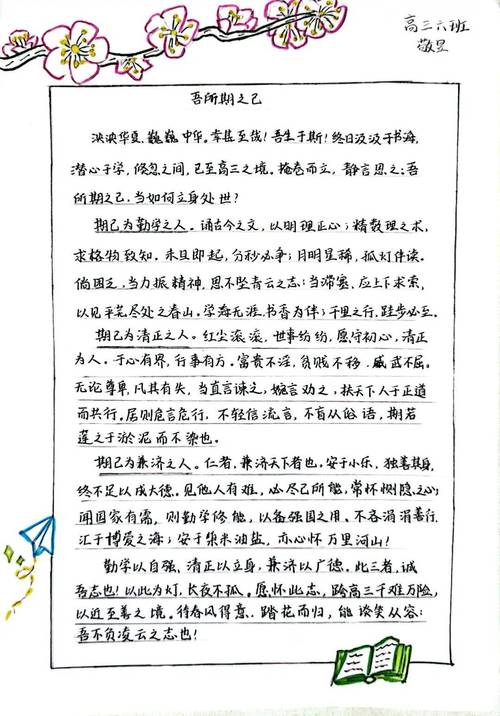 高三六班
敬昱
吾所期之己
泱泱华夏,巍巍中华。幸甚至哉!吾生于斯!终日汲汲于书海,
潜心于学,倏忽之间,已至高三之境。掩卷而立,静言思之:吾
所期之己,当如何立身处世?
期己为勤学之人。诵古今之文,以明理正心;精数理之术,
求格物致知。朱旦即起,分秒必争;月明星稀,孤灯伴读。
倘困乏,当力振精神,思不坠青云之志;当滞塞,应上下求索,
以见平芜尽处之春山。学海无涯,书香为伴;千里之行,跬步必至。
期己为清正之人。红尘滚滚,世事纷纷,愿守初心,清正
为人。于心有界,行事有方。富贵不淫,贫贱不移,威武不屈。
无论尊卑,凡其有失,当直言谏之,婉言劝之,扶天下人于正道
而共行。居则危言危行,不轻信流言,不盲从俗语,期若
莲之于淤泥而不染也。
期己为兼济之人。仁者,兼济天下者也。安于小乐,独善其身,
终不足以成大德。见他人有难,必尽己所能,常怀恻隐之心;
闻国家有需,则勤学修能,以备强国之用。不吝涓涓善行,
汇于博爱之海;安于柴米油盐,亦心怀万里河山!
勤学以自强、清正以立身、兼济以广德。此三者,诚
吾志也!以此为灯,长夜不孤。愿怀此志,跨高三千难万险,
以近至善之境。待春风得意,踏花而归,能谈笑从容:
吾不负凌云之志也!